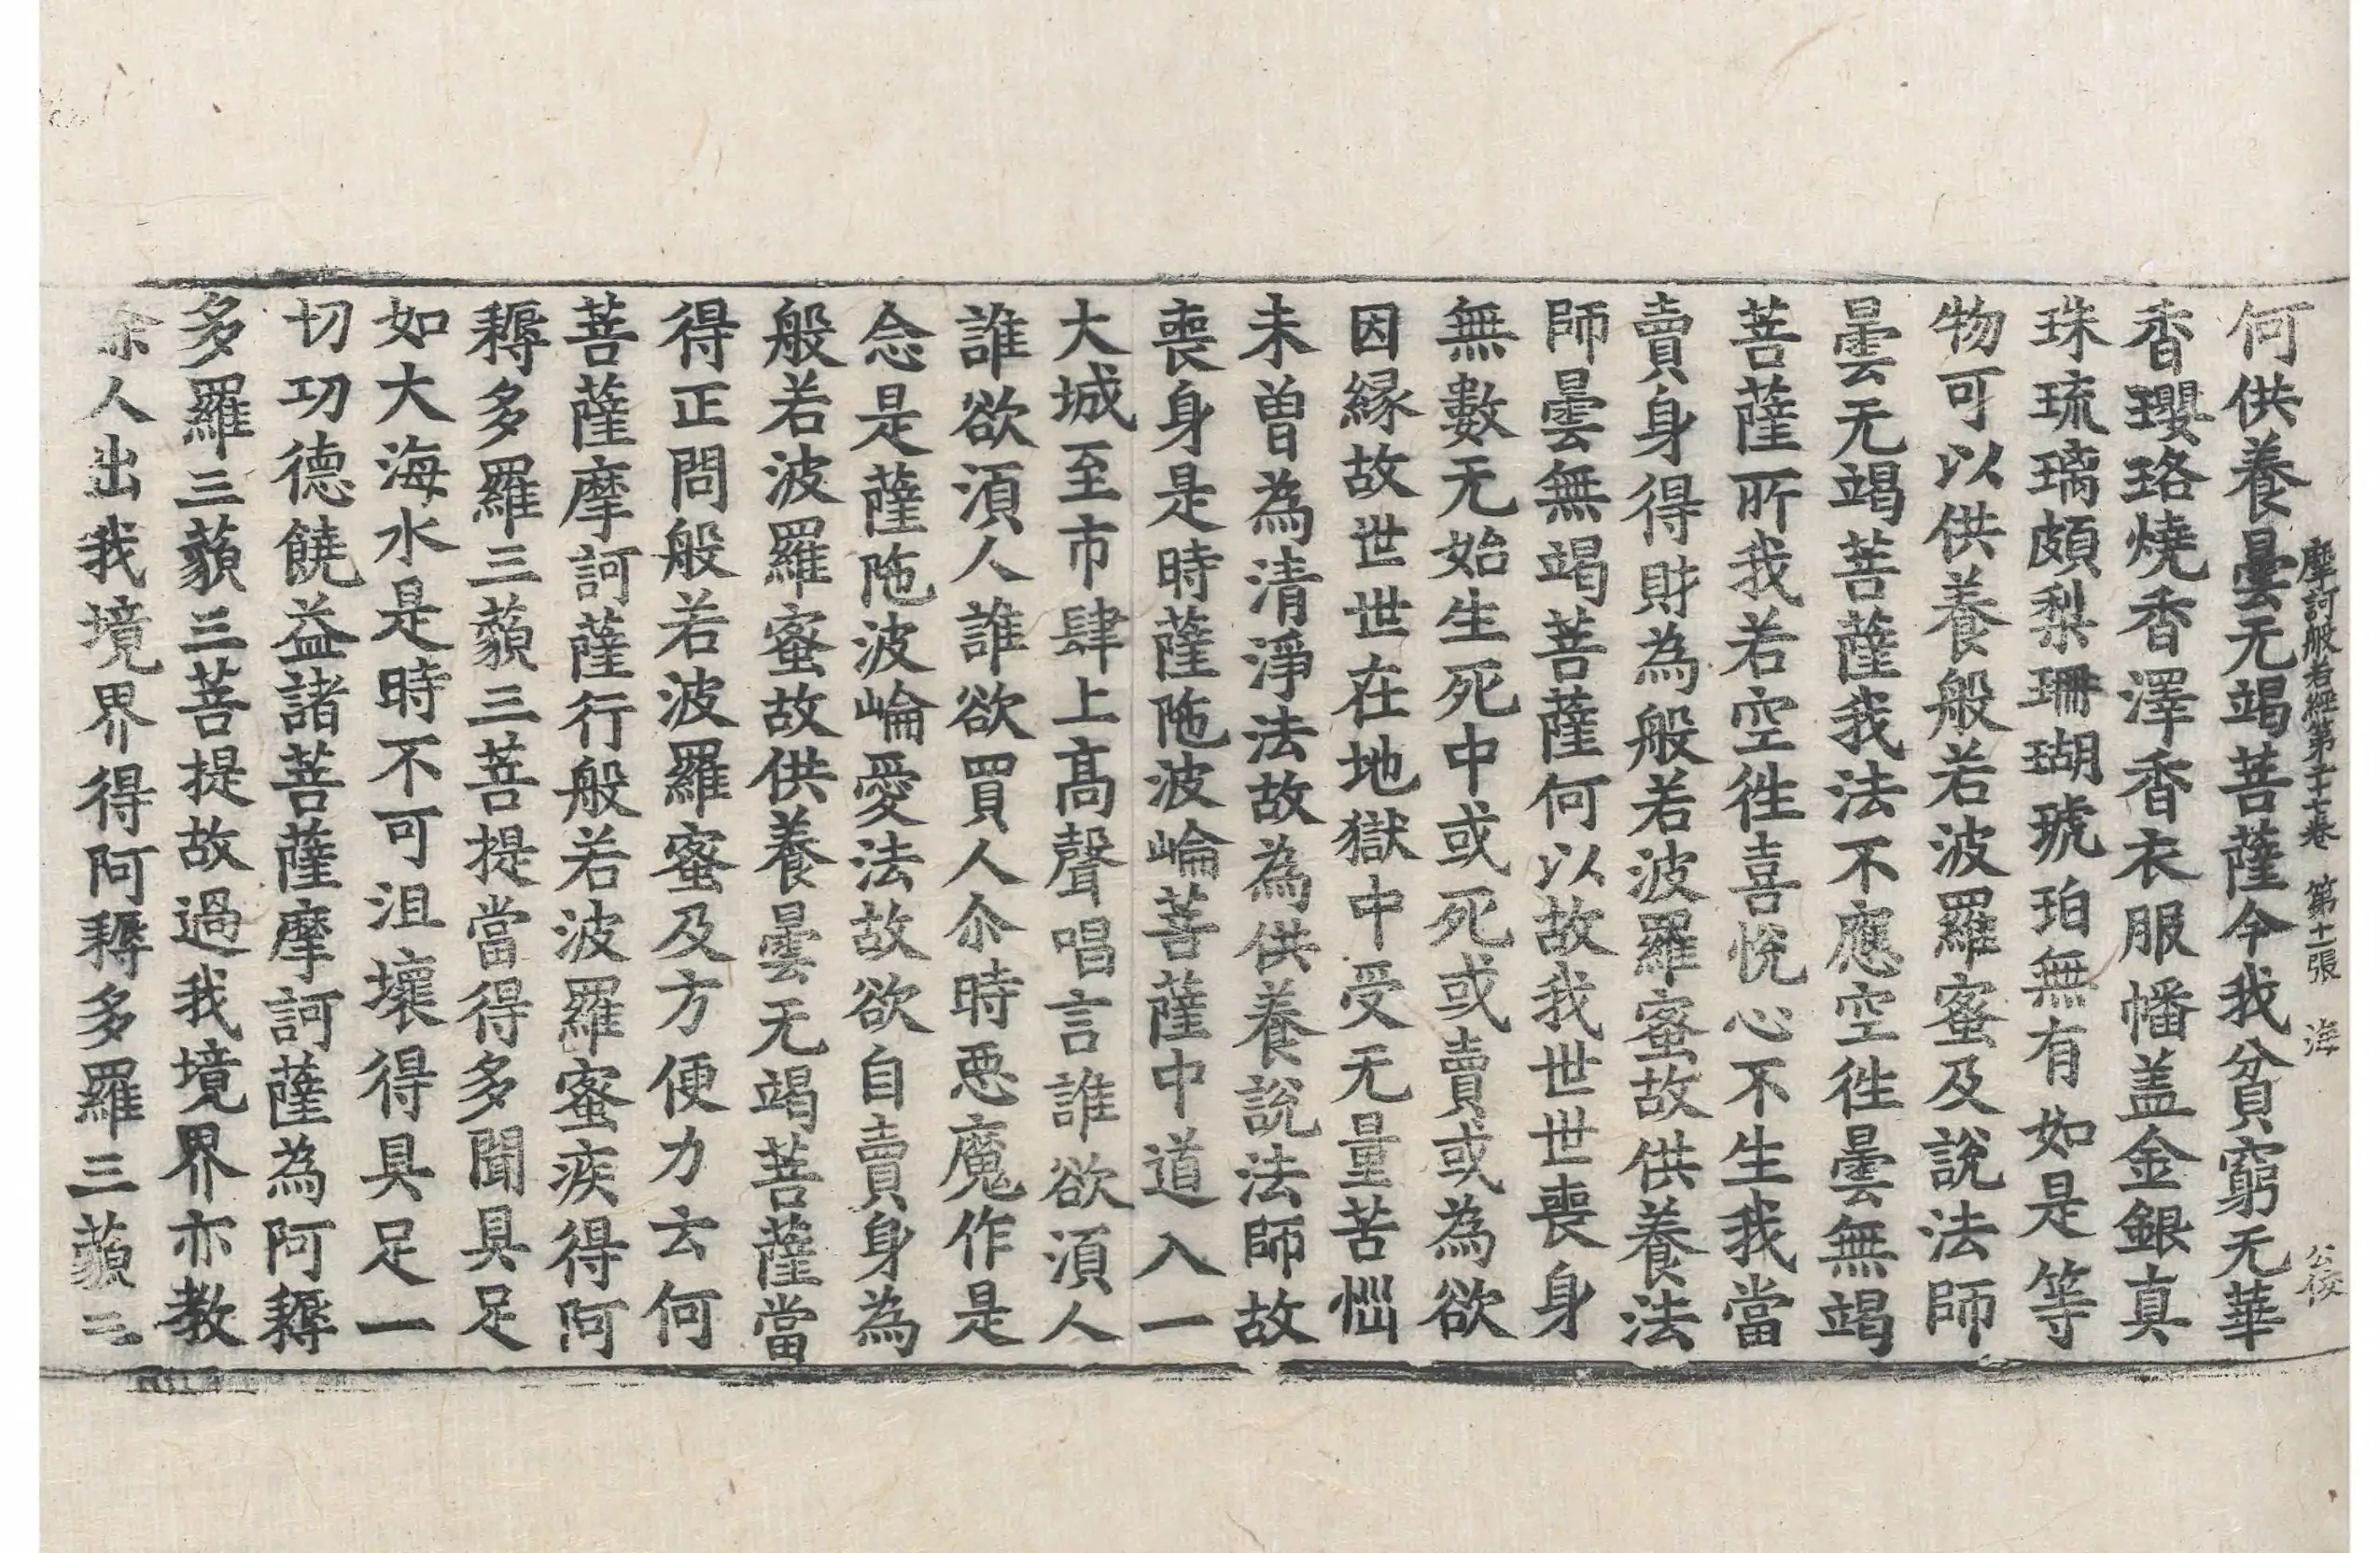 何供養曇无竭菩薩今我貧窮无華
摩訶般若經第二十七卷 第十二張 海 公俊
香瓔珞燒香澤香衣服幡盖金銀真
珠琉璃頗梨珊瑚琥珀無有如是等
物可以供養般若波羅蜜及說法師
曇无竭菩薩我法不應空徃曇無竭
菩薩所我若空徃喜悅心不生我當
賣身得財為般若波羅蜜故供養法
師曇無竭菩薩何以故我世世喪身
無數无始生死中或死或賣或為欲
因緣故世世在地獄中受无量苦惱
未曾為清淨法故為供養說法師故
喪身是時薩陁波崘菩薩中道入一
大城至市肆上髙聲唱言誰欲湏人
誰欲湏人誰欲買人尒時惡魔作是
念是薩陁波崘愛法故欲自賣身為
般若波羅蜜故供養曇无竭菩薩當
得正問般若波羅蜜及方便力云何
菩薩摩訶薩行般若波羅蜜疾得阿
耨多羅三藐三菩提當得多聞具足
如大海水是時不可沮壞得具足一
切功德饒益諸菩薩摩訶薩為阿耨
多羅三藐三菩提故過我境界亦教
余人出我境界得阿耨多羅三藐三